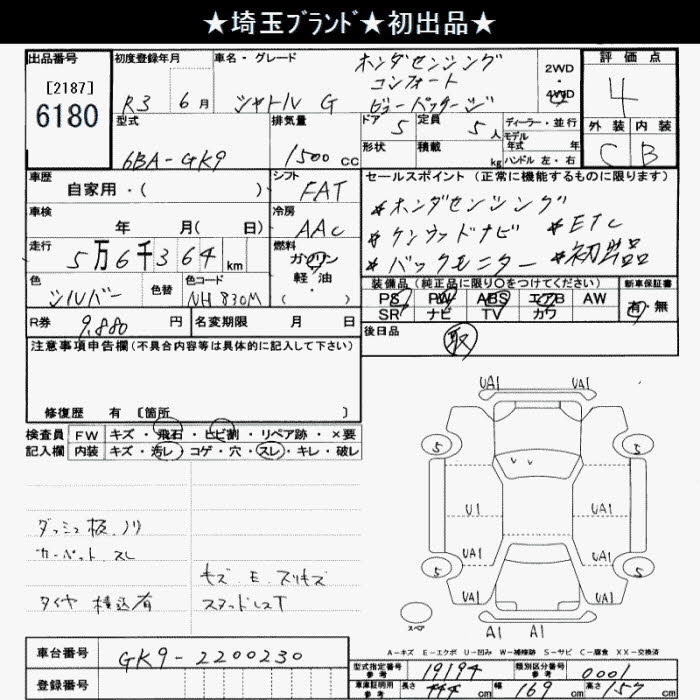 ★埼玉ﾌﾞﾗﾝﾄﾞ★初出品★
出品番号
[2187]
6180
初度登録年月
R3 6月
車名・グレード
シャトル G
ホンダセンシング
コンフォート
ビューパッケージ
2WD
・
4WD
評価点
4
外装 内装
C B
型式
6BA-GK9
排気量
1500 cc
ドア 5
定員 5 人
ディーラー・並行
モデル
年式 年
形状
積載 kg
ハンドル 左・右
車歴
自家用・( )
シフト
FAT
車検
年 月( 日)
冷房
AAC
走行
5万6千364 km
燃料
ガソリン
軽油
・( )
色
シルバー
色替
色コード
NH830M
R券 9,880 円
名変期限 月 日
セールスポイント (正常に機能するものに限ります)
*ホンダセンシング
*ケンウッドナビ *ETC
*バックモニター *初出品
装備品(純正品に限り○をつけてください)
PS PW ABS エアB AW
SR ナビ TV カワ
新車保証書
有・無
後日品
取
注意事項申告欄(不具合内容等は具体的に記入して下さい)
修復歴 有 〔箇所 〕
検査員
記入欄
FW キズ・飛石・ヒビ割・リペア跡・×要
内装 キズ・汚レ・コゲ・穴・スレ・キレ・破レ
ダッシュ板.ノリ
カーペット スレ
キズ.E.スリキズ
タイヤ 積込有
スタッドレスT
UA1 UA1
5 5
U1 UA1
UA1 UA1
5 5
UA1 UA1
A1 A1
スペア
A-キズ E-エクボ U-凹み W-補修跡 S-サビ C-腐食 XX-交換済
車台番号 GK9-2200230
登録番号
型式指定番号
参考
19194
類別区分番号
参考
0001
車庫証明用
参考
長さ 444 cm 幅 169 cm 高さ 157 cm